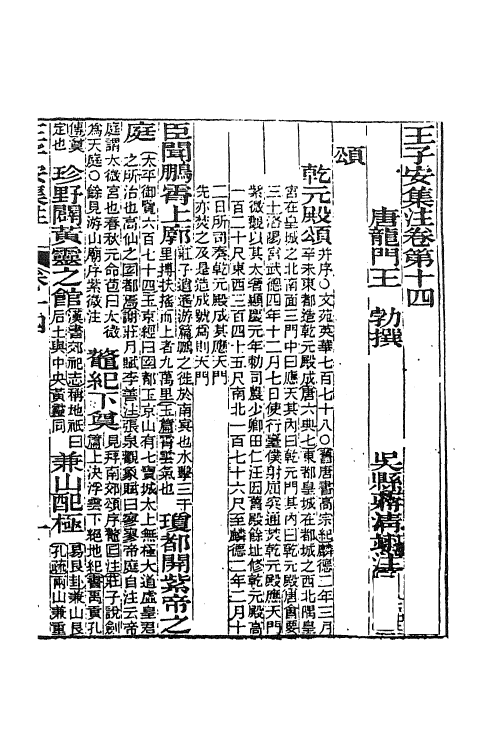 王子安集注卷第十四
唐龍門王　勃撰
吳縣蔣清翊注
頌
乾元殿頌
并序○文苑英華七百七十八○舊唐書高宗紀麟德二年三月
辛未東都造乾元殿成唐六典七東都皇城在都城之西北隅皇
宮在皇城之北南面三門中曰應天其內曰乾元門其內曰乾元殿唐會要
三十洛陽宮武德四年十二月七日使行臺僕射屈突通焚乾元殿應天門
紫微觀以其太奢顯慶元年勅司農少卿田仁汪因舊殿餘址修乾元殿高
一百二十尺東西三百四十五尺南北一百七十六尺至麟德二年二月十
二日所司奏乾元殿成其應天門
先亦焚之及是造成號為則天門
臣聞鵬霄上廓
莊子逍遙游篇鵬之徙於南冥也水擊三千
里摶扶搖而上者九萬里玉篇霄雲氣也
瓊都開紫帝之
庭
太平御覽六百七十四玉京經曰國都玉京山有七寶城太上無極大道虛皇君
之所治也高仙之國都焉謝莊月賦李善注張泉觀象賦曰寥寥帝庭自注云帝
庭謂太微宮也春秋元命苞曰太微
為天庭○餘見游山廟序紫微注
鼇紀下奠
見拜南郊頌序鼇圖注莊子說劍
篇上決浮雲下絕地紀書禹貢孔
傳奠
定也
珍野闢黃靈之館
漢書郊祀志稱地祇曰
后土與中央黃靈同
兼山配極
易艮卦兼山艮
孔疏兩山兼重